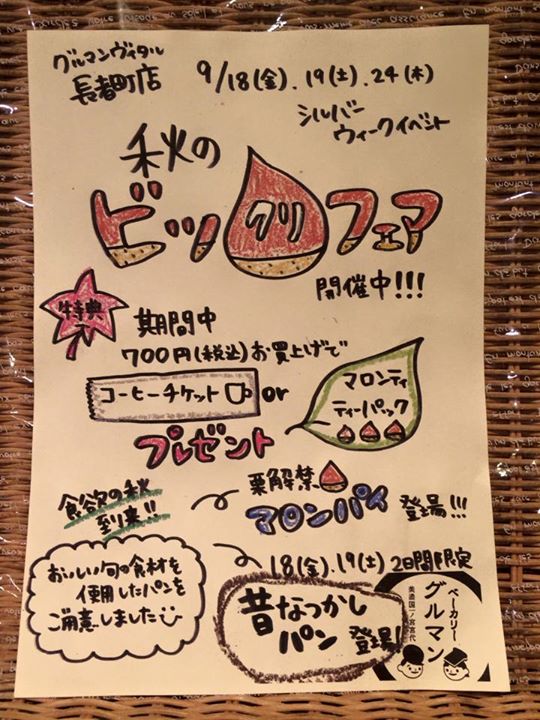 グルマンヴィタル
長者町店
9/18(金).19(土).24(木)
シルバー
ウィークイベント
秋の
ビックリフェア
開催中!!!
特典
期間中
700円(税込)お買上げで
コーヒーチケット or マロンティ
ティーパック
プレゼント
食欲の秋
到来!!
栗解禁
マロンパイ 登場!!!
おいしい旬の食材を
使用したパンを
ご用意しました
18(金).19(土)2日間限定
昔なつかし
パン 登場!
ベーカリー
グルマン